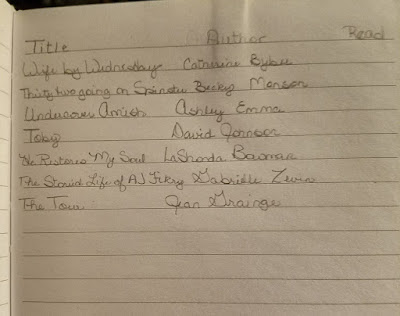 Title Author Read
Wife by Wednesday Catherine Bybee
Thirty two going on Spinster Becky Monson
Undercover Amish Ashley Emma
Toby David Johnson
He Restores My Soul LaShonda Bowman
The Storied Life of AJ Fikry Gabrielle Zevin
The Tour Jean Grainger